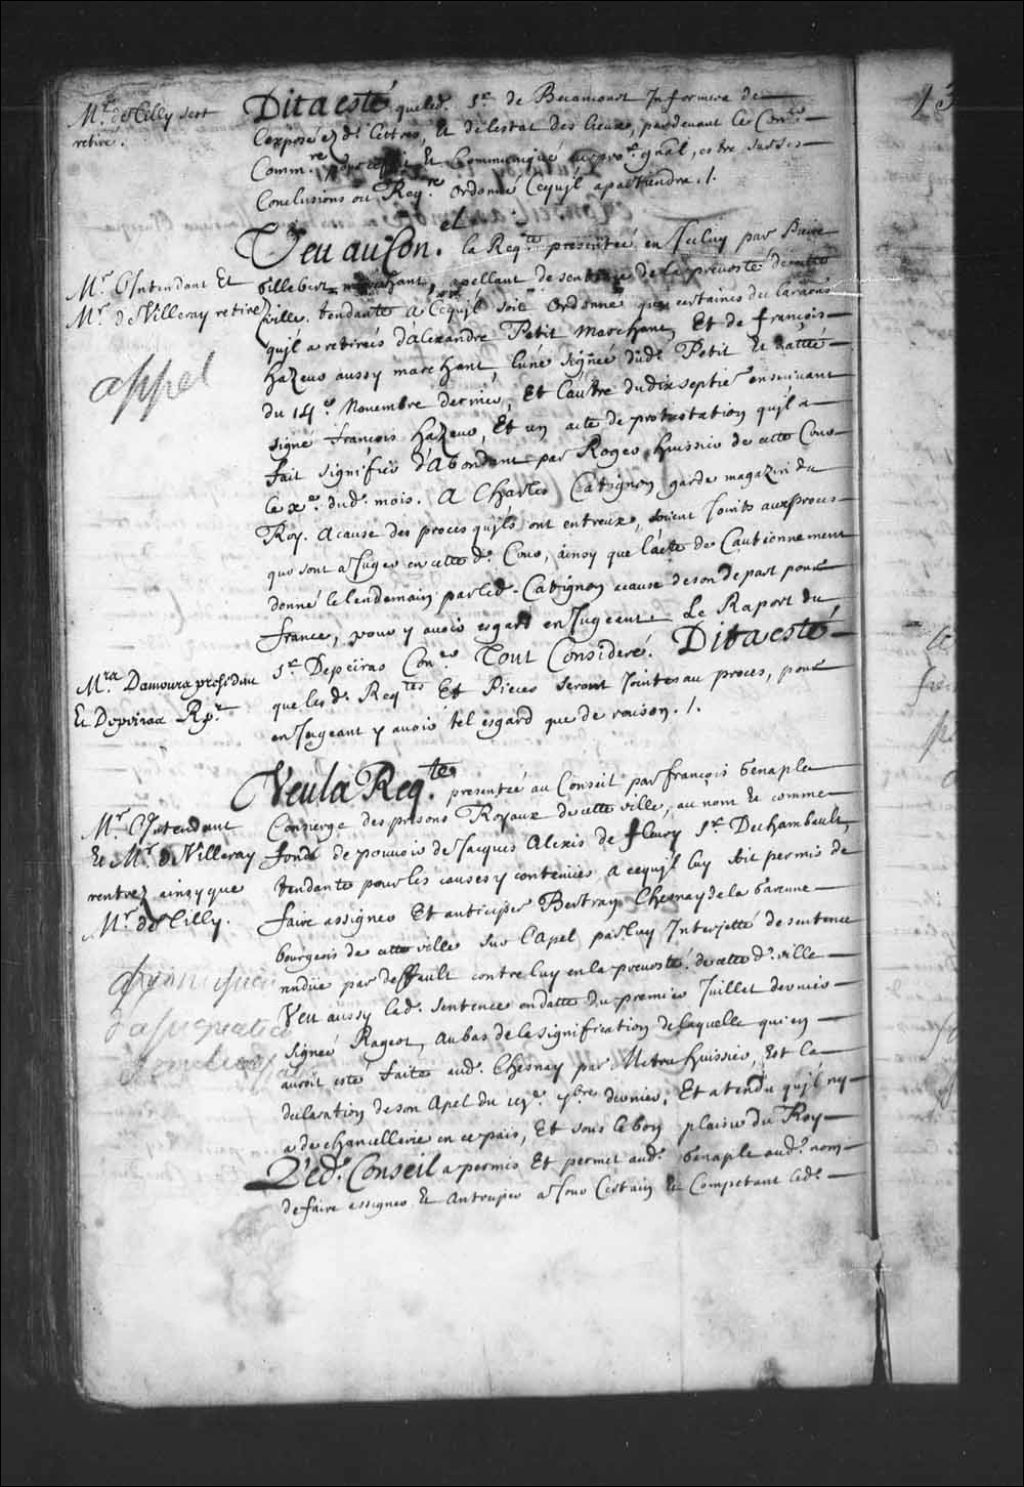 Mr. de Tilly sest
retiré.
Dit a esté que led. Sr. de Becancourt Informera de
l'exposé esd. lettres, Et de lestat des lieux, pardevant le Coner.
Comm.re Et Communiqué au pro.r gnāl, estre sur ses
Conclusions ou Req.re ordonné Cequil apartiendra ./.
Veu au Con.el la Req.te presentée en Iceluy par
Mr. L'Intendant Et
Mr. de Villeray retirez
appel
Gillebert marchant, apellant de sentence de la prevosté de cette
ville. tendante a Cequil soit Ordonné que certaines declaraons
quil a retirées d'alexandre Petit Marchant, Et de françois
Hazeur aussy marchant, lune signée dud. Petit Et dattée
du 14e. Novembre dernier, Et l'autre du dix septie. ensuivant
signé françois Hazeur, Et un acte de protestation quil a
fait signiffier d'abondant par Roger huissier de cette Cour
le xe. dud. mois. A Charles Catignon garde magazin du
Roy. a cause des proces quils ont entreux, soient Joints aux proces
qui sont a Juger en cette d. Cour, ainsy que l'acte de Cautionnement
donné le lendemain par led. Catignon a cause de son depart pour
france, pour y avoir esgard en Jugeant. Le Raport du
Mr. Damours presidant
Et Depeiras Rp.r
Sr. Depeiras Con.er Tout Consideré. Dit a esté
que lesd. Req.tes Et Pieces seront Jointes au proces, pour
en Jugeant y avoir tel esgard que de raison ./.
Veu la Req.te presentée au Conseil par françois Genaple
Mr. L'Intendant
Et Mr. de Villeray
rentrez ainsy que
Mr. de Tilly.
Concierge des prisons Royaux de cette ville, au nom Et comme
fondé de pouvoir de Jacques Alexis de fleury Sr. Deschambault,
tendante pour les causes y contenües, a cequil luy soit permis de
faire assigner Et anticiper Bertran Chesnay de la Garenne
bourgeois de cette ville sur l'apel par luy Interjetté de sentence
rendüe par deffault contre luy en la prevosté de cette d. ville
Veu aussy lad. sentence en datte du premier Juillet dernier
Signée Rageot, au bas de la signification de laquelle qui en
auroit esté faite aud. Chesnay par Metru huissier, Est la
declaration de son Apel du 7bre dernier, Et atendu quil ny
a de chancellerie en ce païs, Et sous le bon plaisir du Roy
Led. Conseil a permis Et permet aud. Genaple aud. nom
de faire assigner Et Anticiper a Jour Certain Et Competant led.